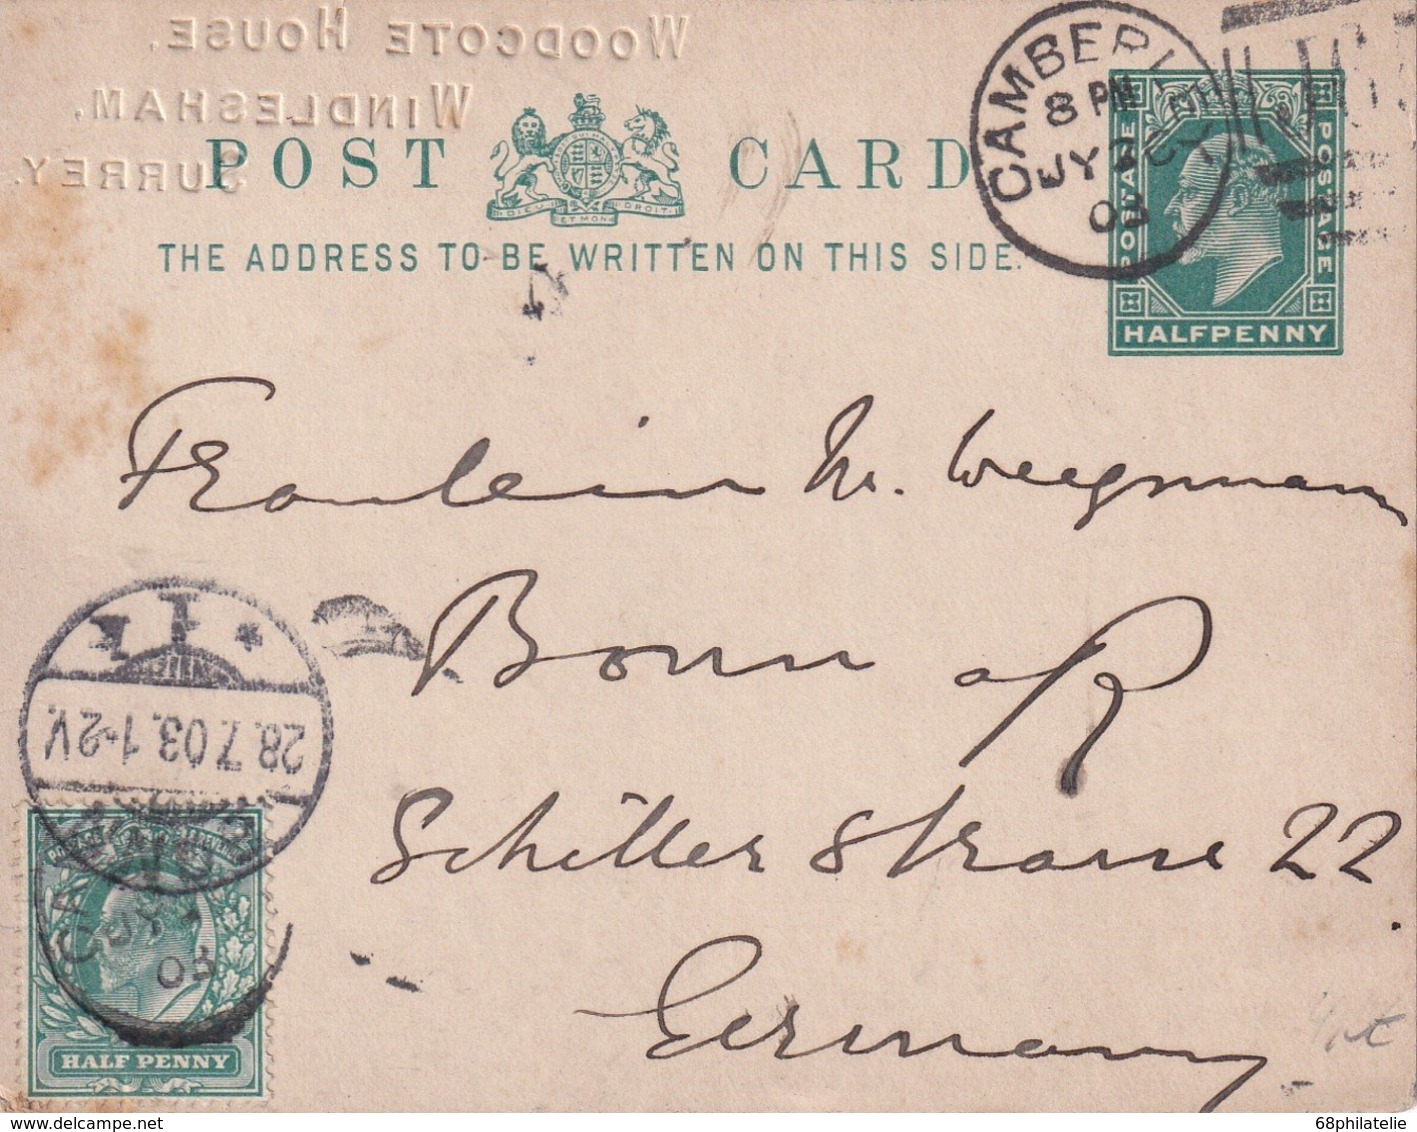 WOODCOTE HOUSE,
WINDLESHAM,
SURREY.
POST CARD
DIEU ET MON DROIT
THE ADDRESS TO BE WRITTEN ON THIS SIDE.
CAMBERL
8 PM
JY
03
POSTAGE POSTAGE
HALFPENNY
Fraulein M. Weegmann
Bonn a/R
Schiller Strasse 22
Germany
28.7.03. 1-2V.
CA
JY
03
HALF PENNY
68philatelie - delcampe.net